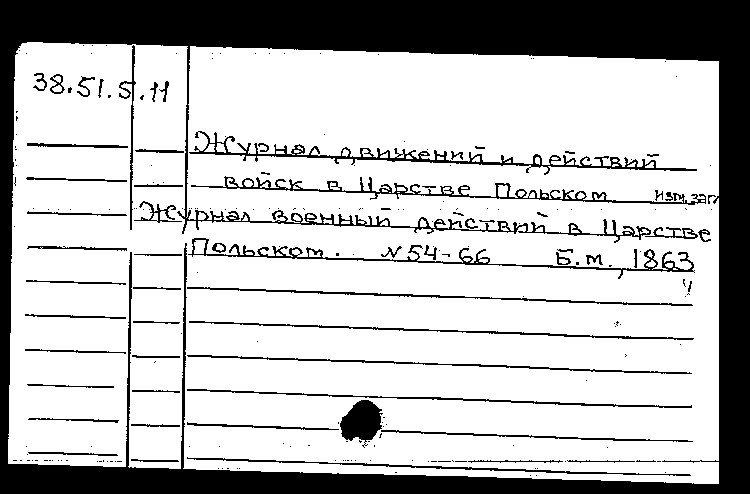 38.51.5.11
Журнал движений и действий
войск в Царстве Польском изм. загл
Журнал военный действий в Царстве
Польском. N 54-66 Б.м., 1863